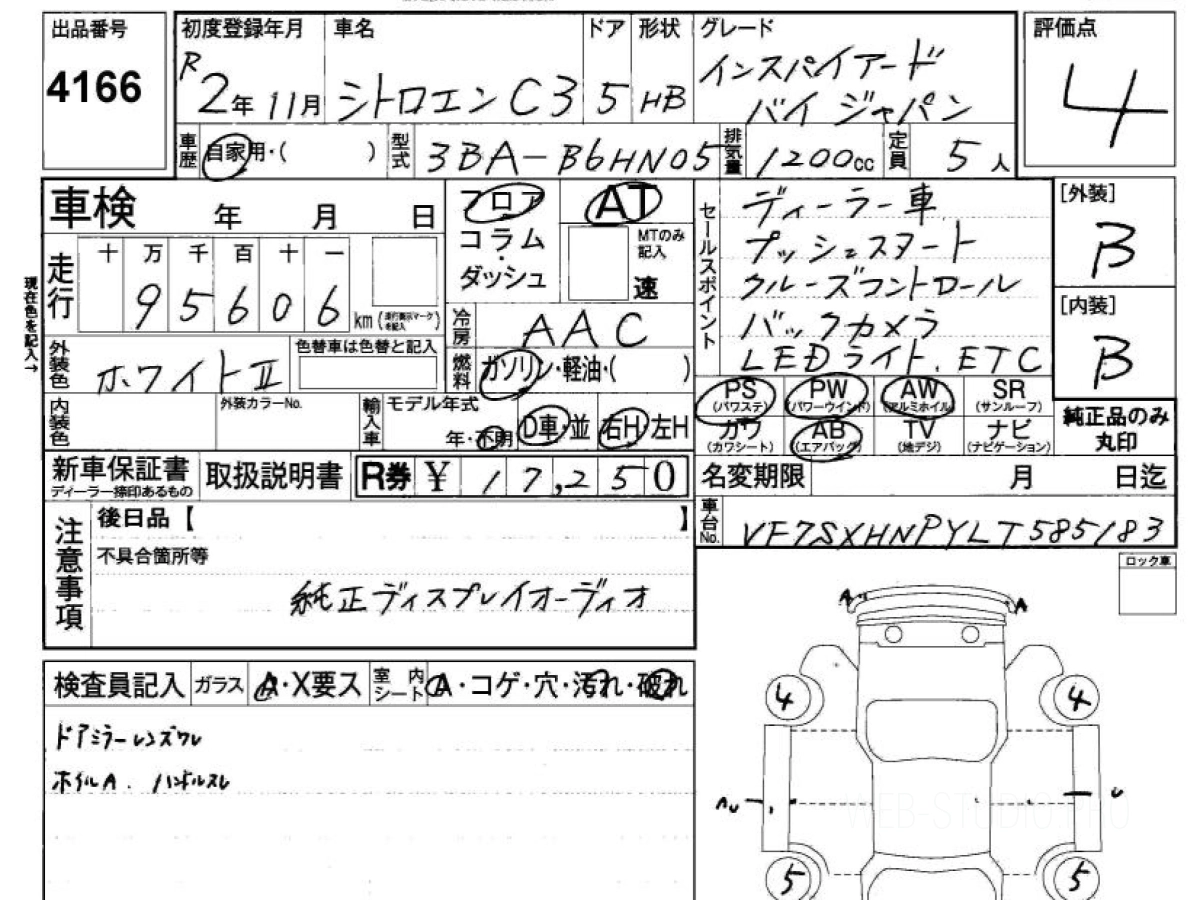 出品番号
4166
初度登録年月 車名 ドア 形状 グレード
R2年 11月 シトロエン C3 5 HB インスパイアード
バイ ジャパン
評価点
4
車歴 自家用・( ) 型式 3BA-B6HN05 排気量 1200cc 定員 5人
車検 年 月 日
フロア
コラム
・
ダッシュ
AT
MTのみ
記入
速
セールスポイント
ディーラー車
プッシュスタート
クルーズコントロール
バックカメラ
LEDライト.ETC
[外装]
B
[内装]
B
現在色を記入→
走行 十 万 千 百 十 一
9 5 6 0 6 km(走行表示マークを記入)
冷房 AAC
外装色 ホワイトII 色替車は色替と記入
燃料 ガソリン・軽油・( )
PS
(パワステ)
PW
(パワーウインド)
AW
(アルミホイル)
SR
(サンルーフ)
カワ
(カワシート)
AB
(エアバック)
TV
(地デジ)
ナビ
(ナビゲーション)
純正品のみ
丸印
内装色 外装カラーNo. 輸入車 モデル年式
年・不明 D車・並 右H・左H
新車保証書
ディーラー捺印あるもの
取扱説明書 R券 ¥ 17,250
名変期限 月 日迄
車台No. VF7SXHNPYLT585183
注意事項
後日品【 】
不具合箇所等
純正ディスプレイオーディオ
ロック車
検査員記入 ガラス A・X要ス 室内シート A・コゲ・穴・汚れ・破れ
ドアミラーレンズワレ
ホイルA. ハンドルスレ
A A
4 4
AU U
5 5
WEB-STUDIO.PRO